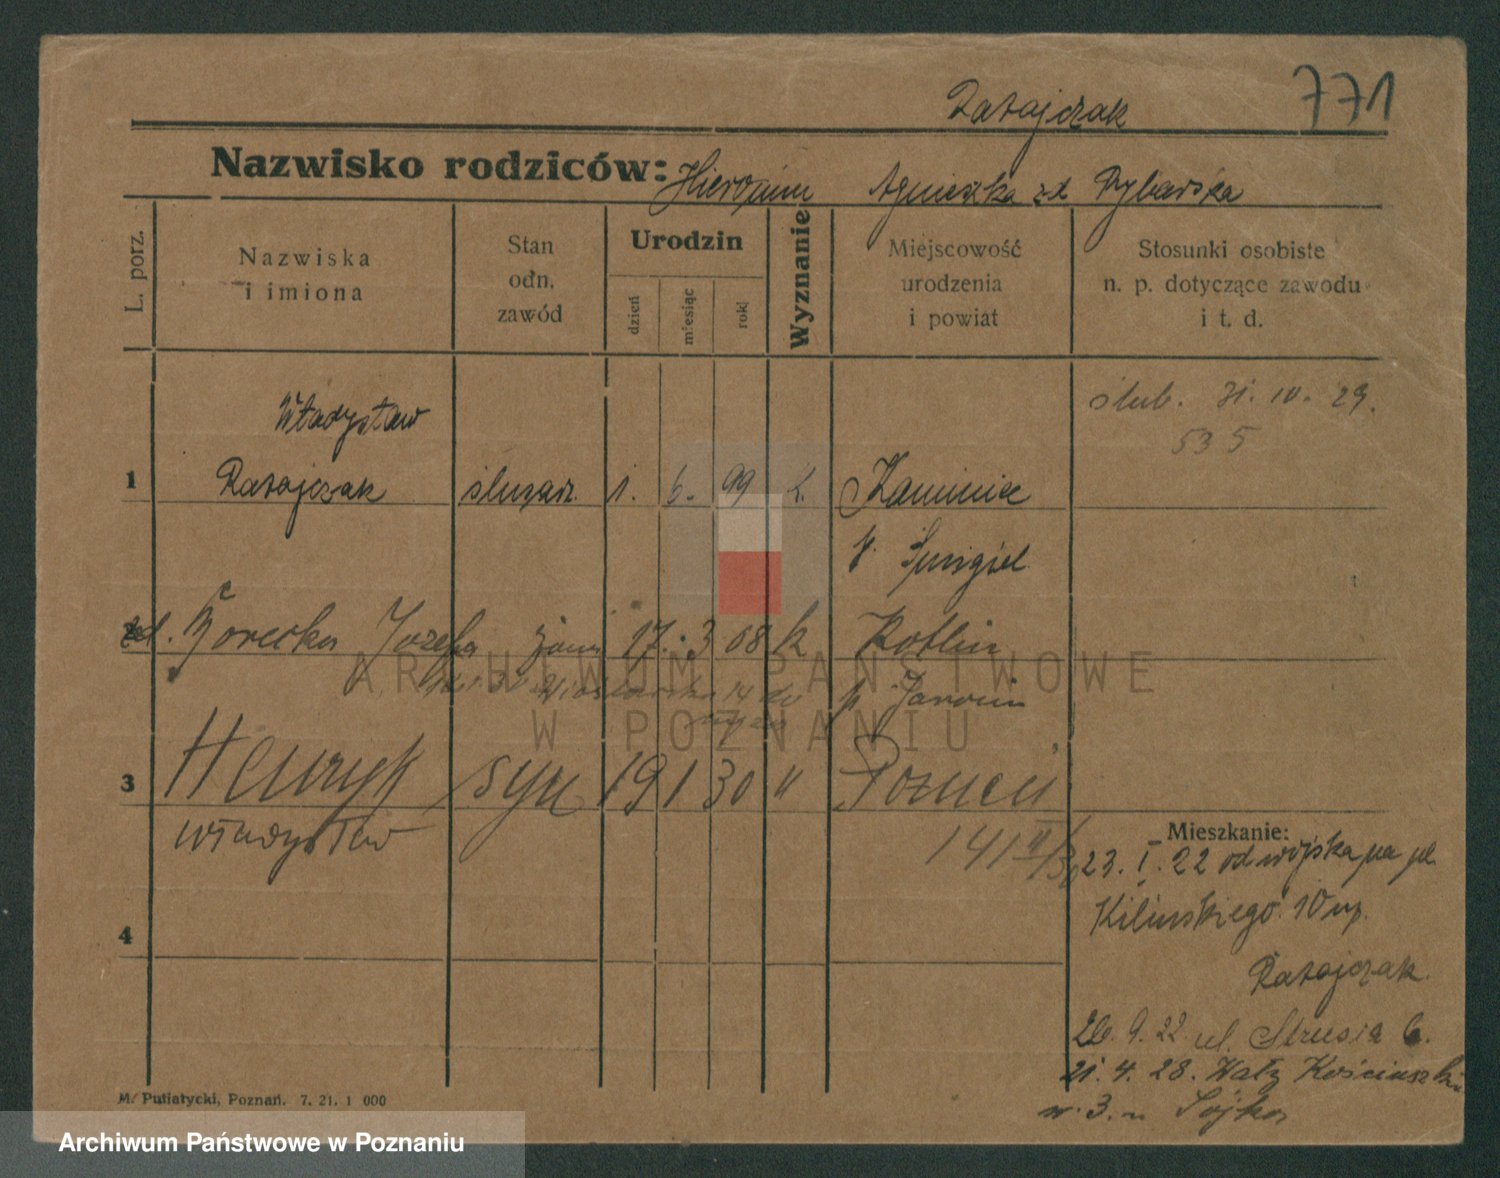 Ratajczak 771
Nazwisko rodziców: Hieronim Agnieszka zd Rybarska
L. porz.
Nazwiska
i imiona
Stan
odn.
zawód
Urodzin
dzień
miesiąc
rok
Wyznanie
Miejscowość
urodzenia
i powiat
Stosunki osobiste
n. p. dotyczące zawodu
i t. d.
Władysław
ślub. 31. 10. 29.
535
1 Ratajczak ślusarz. 1. 6. 99 k. Kamieniec
p. Śmigiel
zd. Górecka Józefa żona 17. 3 08 k Kotlin
14 p. Jarocin
3 Henryk syn 19 1 30 " Poznań
Władysław
141 II/30
Mieszkanie:
23. I. 22 od wojska na pl.
Kilińskiego 10 np.
4
Ratajczak.
26. 9. 22 ul. Strusia 6.
21. 4. 28. Wały Kościuszki
n. 3. u Sójka
M. Putiatycki, Poznań. 7. 21. 1 000
ARCHIWUM PAŃSTWOWE
W POZNANIU
Archiwum Państwowe w Poznaniu